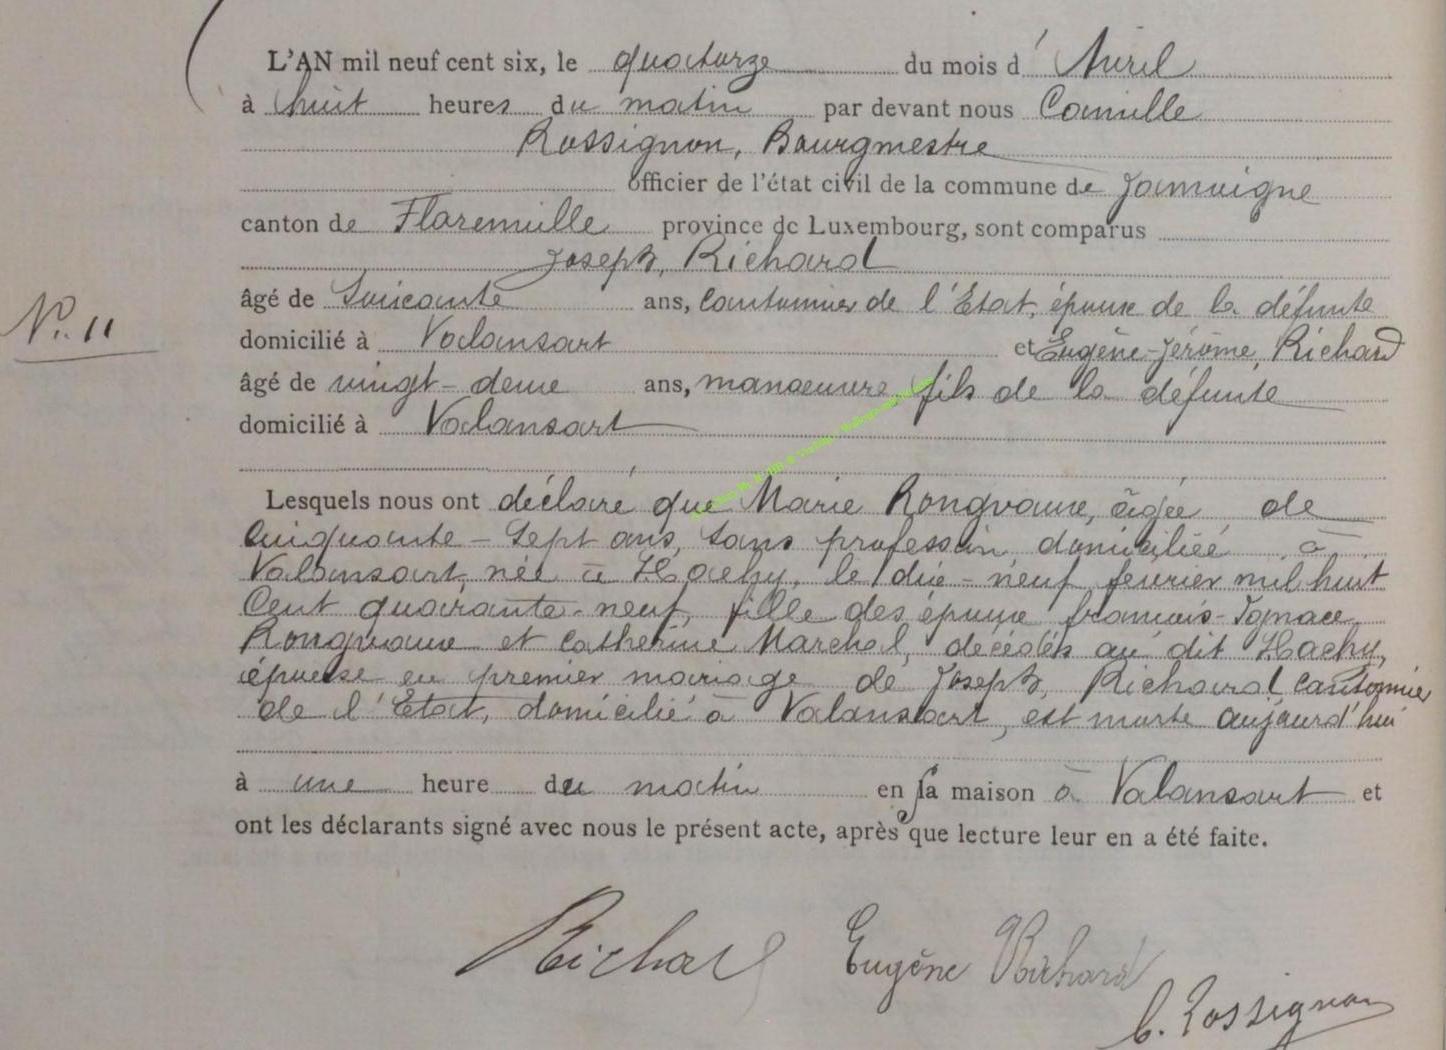 L'AN mil neuf cent six, le quatorze du mois d'Avril
à huit heures du matin par devant nous Camille
Rossignon, Bourgmestre
officier de l'état civil de la commune de Jamoigne
canton de Florenville province de Luxembourg, sont comparus
Joseph, Richard
âgé de Soixante ans, cantonnier de l'Etat, époux de la défunte
N°. 11
domicilié à Valansart et Eugène-Jérôme, Richard
âgé de vingt-deux ans, manoeuvre, fils de la défunte
domicilié à Valansart
Lesquels nous ont déclaré que Marie Rongvaux, âgée de
Cinquante-Sept ans, sans profession domiciliée à
Valansart, née à Hachy, le dix-neuf février mil huit
Cent quarante-neuf, fille des époux francois-Ignace
Rongvaux et Catherine Marchal, décédés au dit Hachy,
épouse en premier mariage de Joseph, Richard cantonnier
de l'Etat, domicilié à Valansart, est morte aujourd'hui
à une heure du matin en sa maison à Valansart et
ont les déclarants signé avec nous le présent acte, après que lecture leur en a été faite.
Richard Eugène Richard
C. Rossignon